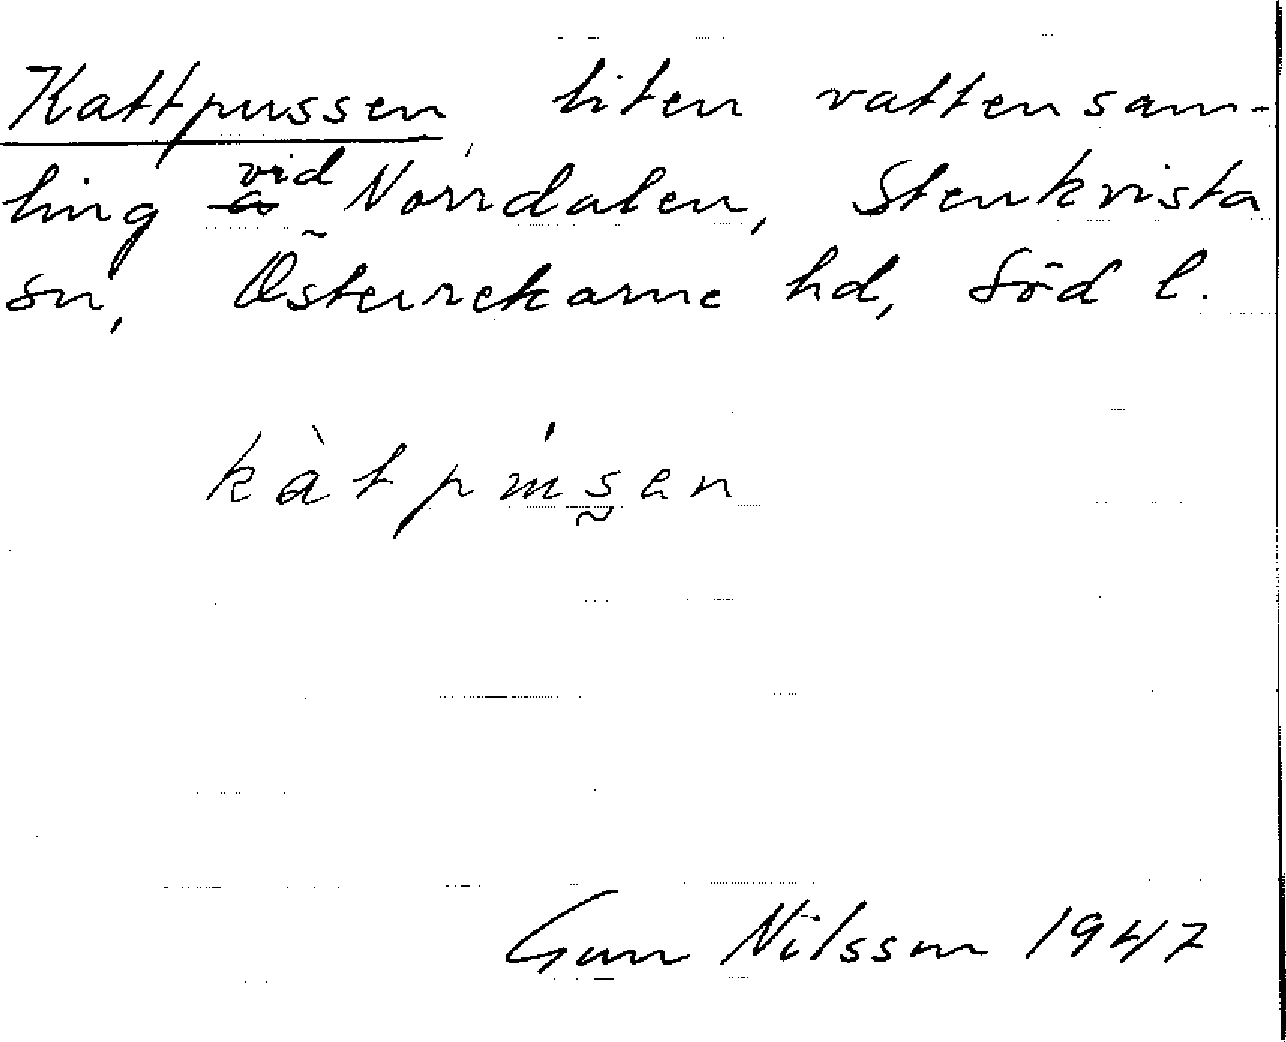 Kattpussen, liten vattensam-
ling vid Norrdalen, Stenkvista
sn, Österrekarne hd, Söd l.
Gun Nilsson 1947